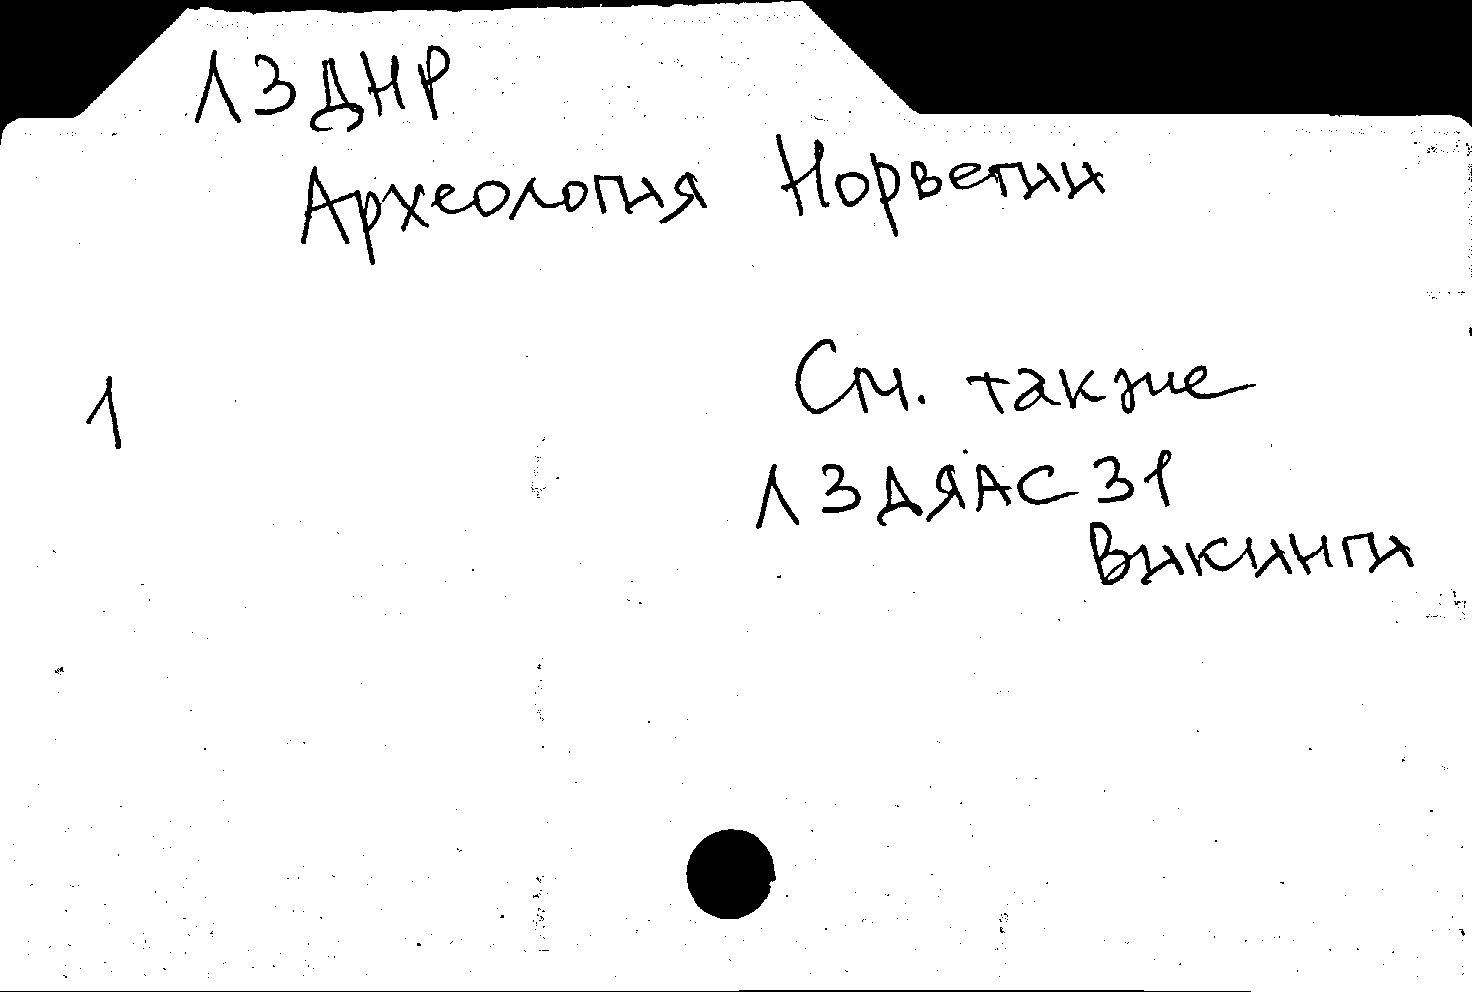 ЛЗДНР
Археология Норвегии
1
См. также
ЛЗДЯАС31
Викинги